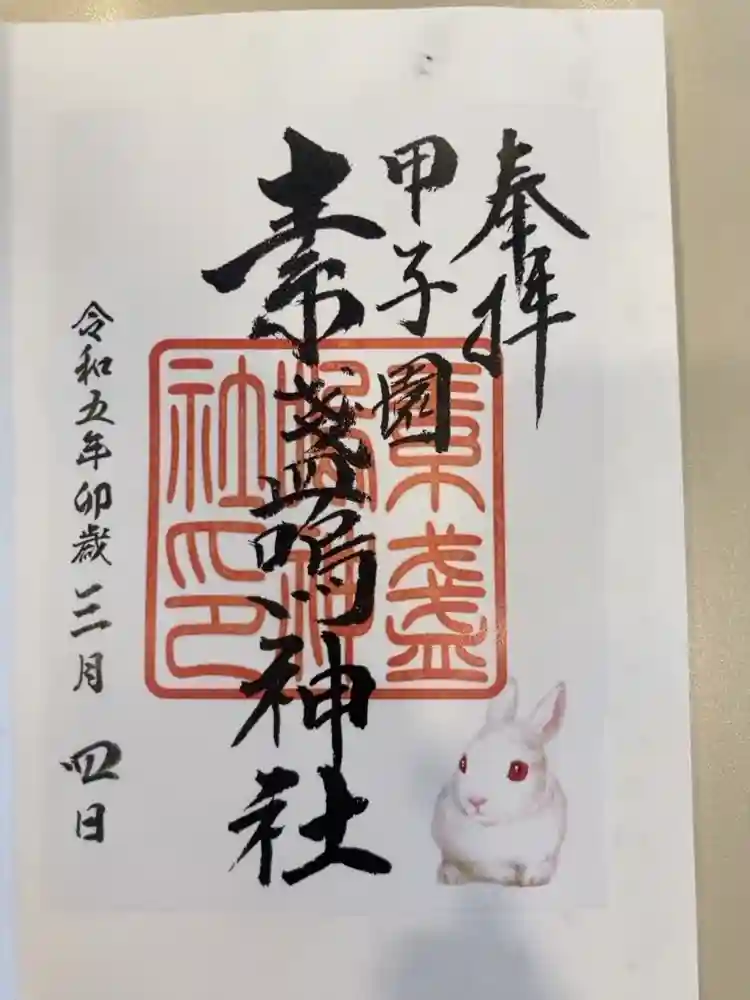 奉拝
甲子園
素盞嗚神社
素盞
嗚神
社印
令和五年卯歳三月四日